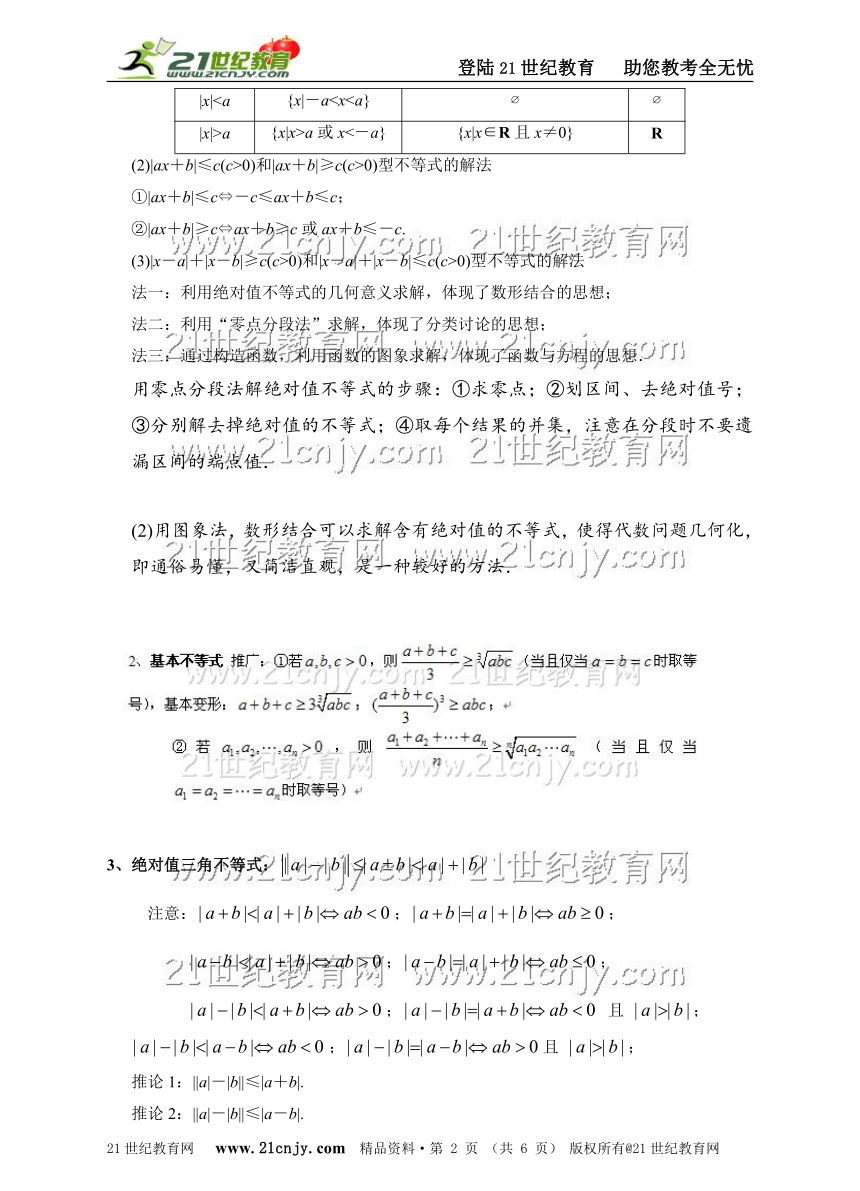 21世纪教育
www.21cnjy.com
登陆21世纪教育 助您教考全无忧
|x|<a {x|－a<x<a} ∅ ∅
|x|>a {x|x>a或x<－a} {x|x∈R且x≠0} R
(2)|ax＋b|≤c(c>0)和|ax＋b|≥c(c>0)型不等式的解法
①|ax＋b|≤c⇔－c≤ax＋b≤c；
②|ax＋b|≥c⇔ax＋b≥c或ax＋b≤－c.
(3)|x－a|＋|x－b|≥c(c>0)和|x－a|＋|x－b|≤c(c>0)型不等式的解法
法一：利用绝对值不等式的几何意义求解，体现了数形结合的思想；
法二：利用“零点分段法”求解，体现了分类讨论的思想；
法三：通过构造函数，利用函数的图象求解，体现了函数与方程的思想．
用零点分段法解绝对值不等式的步骤：①求零点；②划区间、去绝对值号；
③分别解去掉绝对值的不等式；④取每个结果的并集，注意在分段时不要遗
漏区间的端点值．
(2)用图象法，数形结合可以求解含有绝对值的不等式，使得代数问题几何化，
即通俗易懂，又简洁直观，是一种较好的方法．
2、基本不等式 推广：①若a,b,c>0,则(a+b+c)/3≥∛abc（当且仅当a=b=c时取等
号），基本变形：a+b+c≥3∛abc；((a+b+c)/3)³≥abc；
②若a₁,a₂,⋯,aₙ>0，则(a₁+a₂+⋯+aₙ)/n≥ⁿ√(a₁a₂⋯aₙ)（当且仅当
a₁=a₂=⋯=aₙ时取等号）
3、绝对值三角不等式：||a|-|b||≤|a±b|<|a|+|b|
注意：|a+b|<|a|+|b|⇔ab<0；|a+b|=|a|+|b|⇔ab≥0；
|a-b|<|a|+|b|⇔ab>0；|a-b|=|a|+|b|⇔ab≤0；
|a|-|b|<|a+b|⇔ab>0；|a|-|b|=|a+b|⇔ab<0 且 |a|>|b|；
|a|-|b|<|a-b|⇔ab<0；|a|-|b|=|a-b|⇔ab>0且 |a|>|b|；
推论1：||a|－|b||≤|a＋b|.
推论2：||a|－|b||≤|a－b|.
21世纪教育网 www.21cnjy.com 精品资料·第 2 页 （共 6 页） 版权所有@21世纪教育网